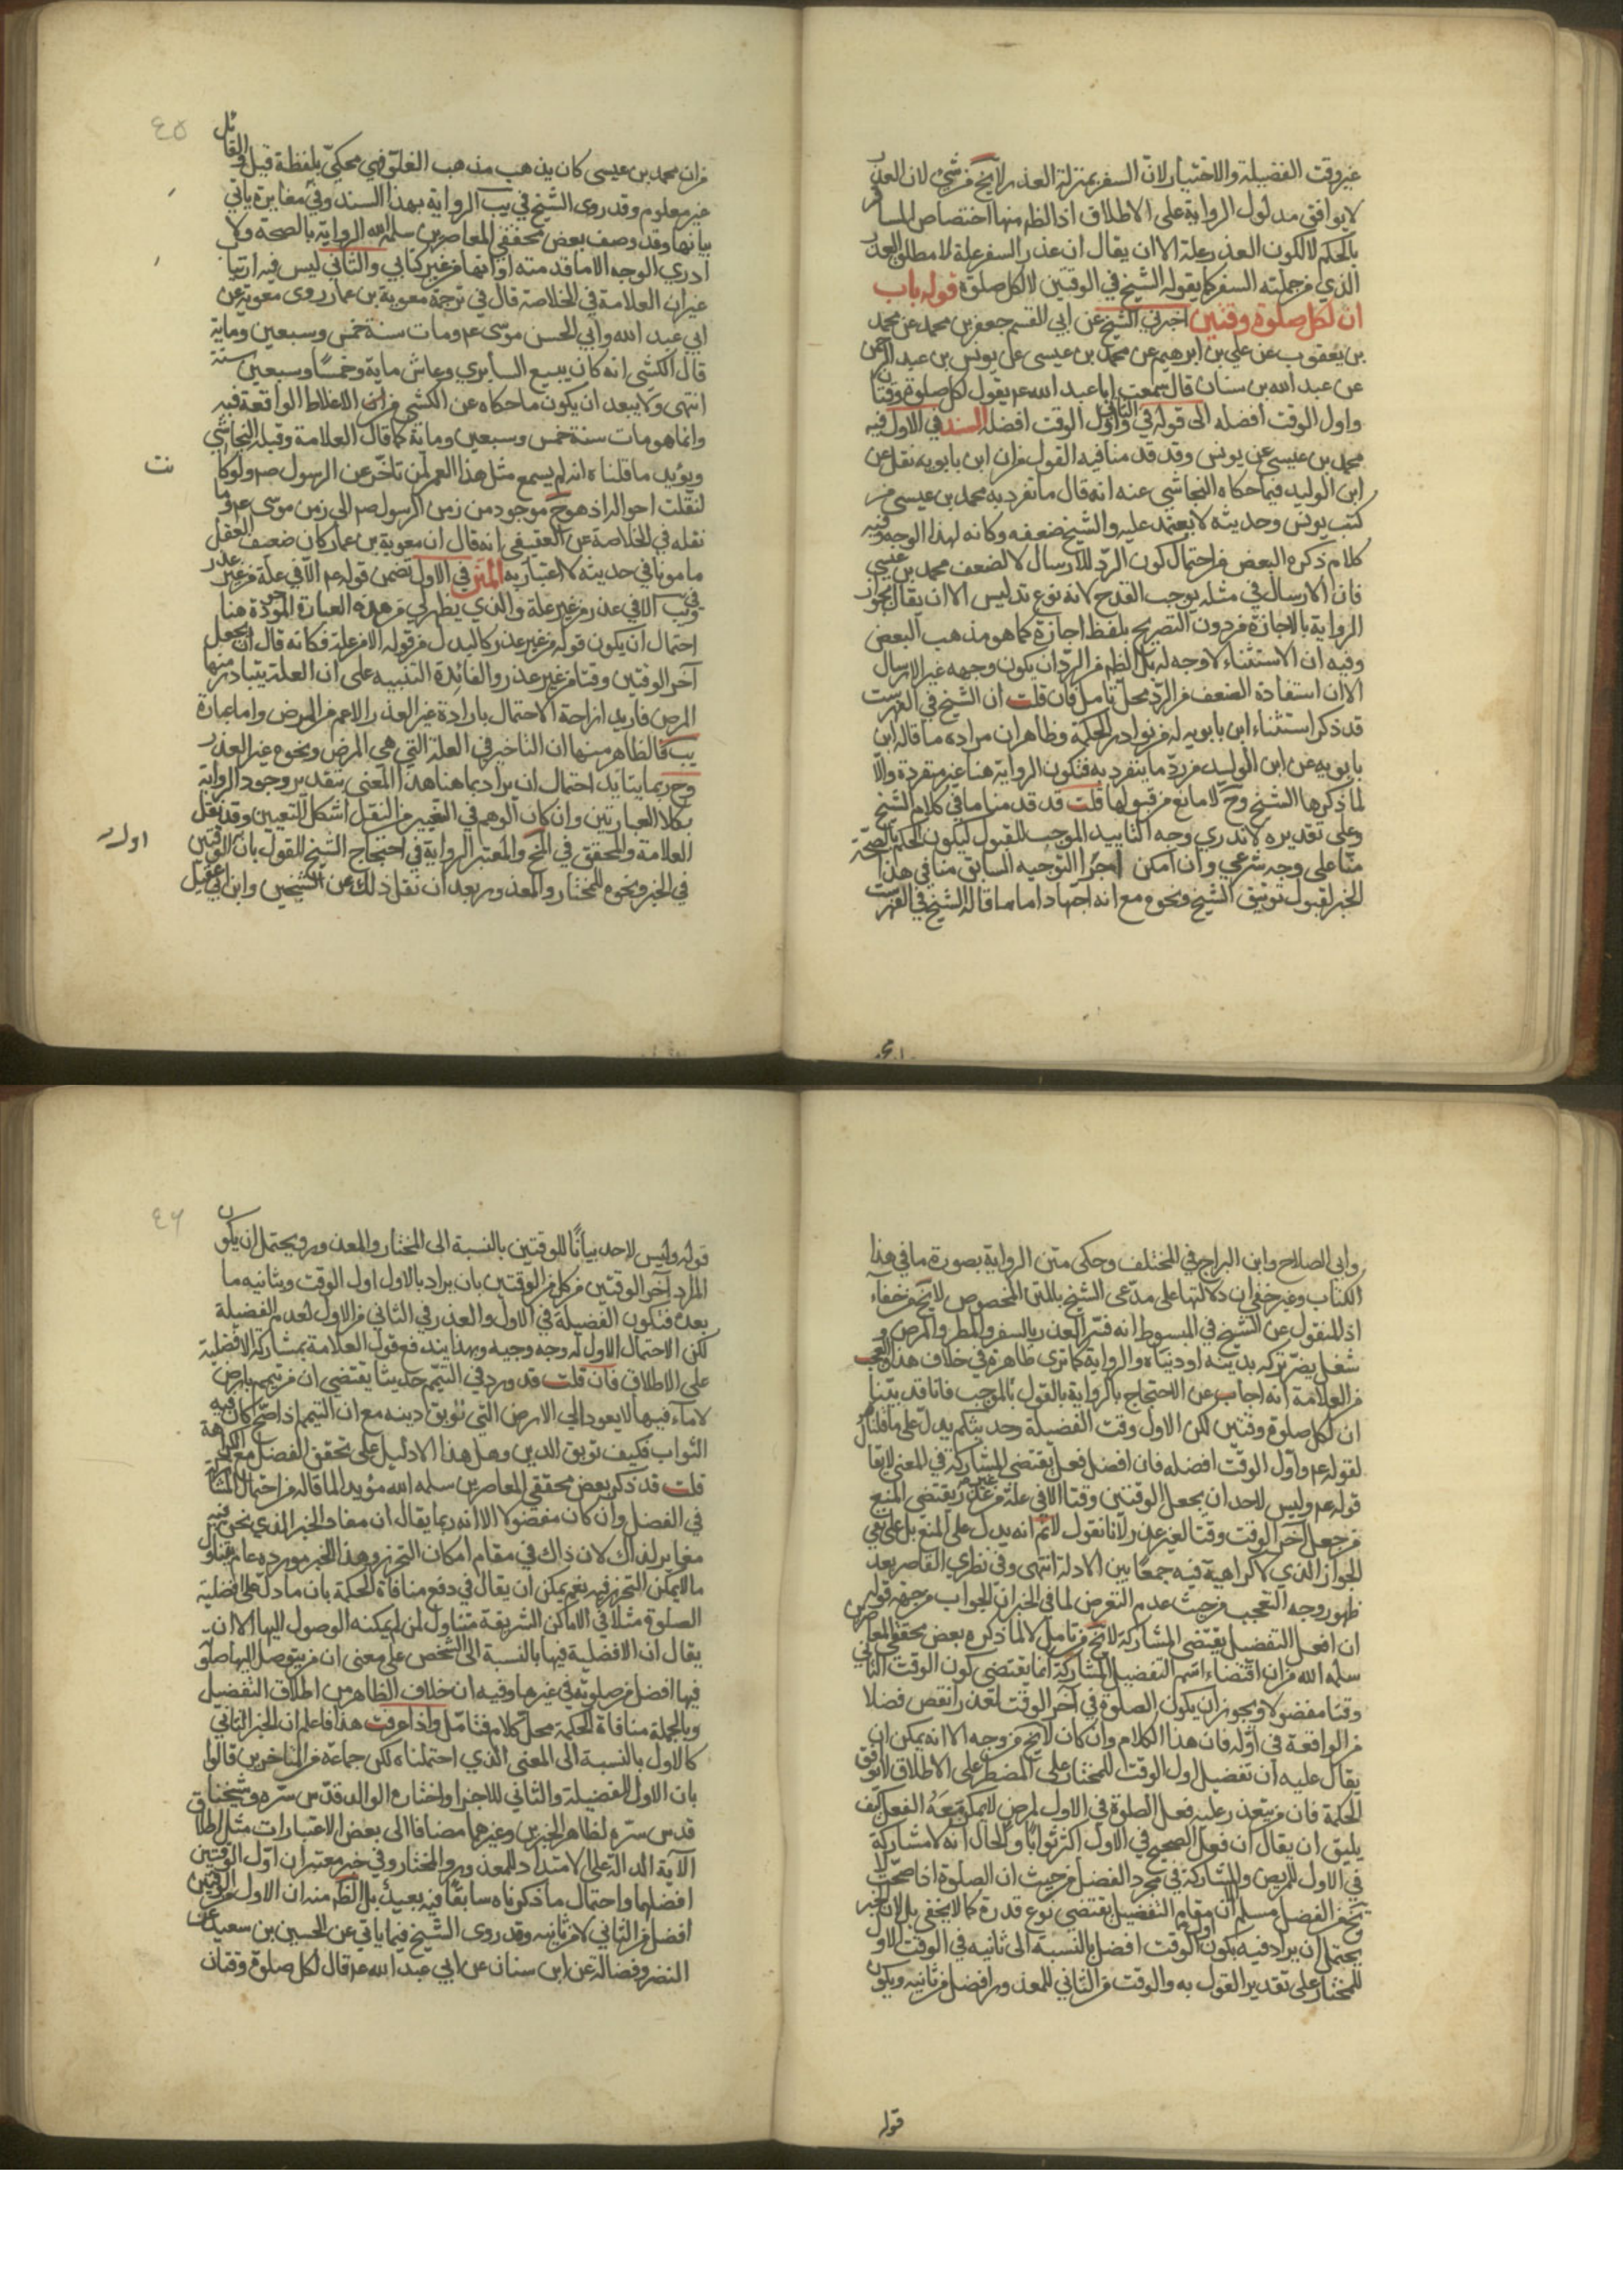 غير وقت الفضيلة والاختيار لان السفر بمنزلة العذر لا يخ من شئ لان العذر
لا يوافق مدلول الرواية على الاطلاق اذ الظم منها اختصاص المسافر
بالحكم لا لكون العذر علة الا ان يقال ان عذر السفر علة لا مطلق العذر
الذي من جملته السفر كما يقوله الشيخ في الوقتين لا لكل صلوة قوله باب
ان لكل صلوة وقتين اخبرني الشيخ عن ابي القسم جعفر بن محمد عن محمد
بن يعقوب عن علي بن ابرهيم عن محمد بن عيسى عن يونس بن عبد الرحمن
عن عبد الله بن سنان قال سمعت ابا عبد الله عم يقول لكل صلوة وقتان
واول الوقت افضله الى قوله في الثاني واول الوقت افضله السند في الاول فيه
محمد بن عيسى عن يونس وقد قدمنا فيه القول من ان ابن بابويه نقل عن
ابن الوليد فيما حكاه النجاشي عنه انه قال ما تفرد به محمد بن عيسى من
كتب يونس وحديثه لا يعتمد عليه والشيخ ضعفه وكانه لهذا الوجه وفيه
كلام ذكره البعض من احتمال كون الرد للارسال لا لضعف محمد بن عيسى
فان الارسال في مثله يوجب القدح لانه نوع تدليس الا ان يقال بجواز
الرواية بالاجازة من دون التصريح بلفظ اجازة كما هو مذهب البعض
وفيه ان الاستثناء لا وجه له بل الظم من الرد ان يكون وجهه غير الارسال
الا ان استفادة الضعف من الرد محل تامل فان قلت ان الشيخ في الفهرست
قد ذكر استثناء ابن بابويه له من نوادر الحكمة وظاهر ان مراده ما قاله ابن
بابويه عن ابن الوليد من رد ما ينفرد به فتكون الرواية هنا غير متفردة والا
لما ذكرها الشيخ وح لا مانع من قبولها قلت قد قدمنا ما في كلام الشيخ
وعلى تقديره لا ندري وجه التاييد الموجب للقبول ليكون الحكم بالصحة
منا على وجه شرعي وان امكن اجراء التوجيه السابق منا في هذا
الخبر لقبول توثيق الشيخ ونحوه مع انه اجتهاد اما ما قاله الشيخ في الفهرست
٤٥
من ان محمد بن عيسى كان يذهب مذهب الغلاة فهي محكي بلفظة قيل والقائل
غير معلوم وقد روى الشيخ في يب الرواية بهذا السند وفي مغايرة ياتي
بيانها وقد وصف بعض محققي المعاصرين سلمه الله الرواية بالصحة ولا
ادري الوجه الا ما قدمته او انها من غير كتابي والثاني ليس فيه ارتياب
غير ان العلامة في الخلاصة قال في ترجمة معوية بن عمار روى معوية عن
ابي عبد الله وابي الحسن موسى عم ومات سنة خمس وسبعين وماية
قال الكشي انه كان يبيع السابري وعاش ماية وخمسا وسبعين سنة
انتهى ولا يبعد ان يكون ما حكاه عن الكشي من الاغلاط الواقعة فيه
وانما هو مات سنة خمس وسبعين وماية كما قال العلامة وقبله النجاشي
ويؤيد ما قلناه انه لم يسمع مثل هذا العمر لمن تاخر عن الرسول صم ولو كان
لنقلت احواله اذ هو ح موجود من زمن الرسول صم الى زمن موسى عم وما
نقله في الخلاصة عن العقيقي انه قال ان معوية بن عمار كان ضعيف العقل
مامونا في حديثه لا اعتبار به المتن في الاول تضمن قوله عم الا في علة من غير عذر
وفي يب الا في عذر من غير علة والذي يظهر لي من هذه العبارة الموردة هنا
احتمال ان يكون قوله من غير عذر كالبدل من قوله الا من علة فكانه قال ان يجعل
آخر الوقتين وقتا من غير عذر والفائدة التنبيه على ان العلة يتبادر منها
المرض فاريد ازاحة الاحتمال بارادة غير العذر الاعم من المرض واما عبارة
يب فالظاهر منها ان التاخير في العلة التي هي المرض ونحوه غير العذر
وح ربما يتايد احتمال ان يراد بما هنا هذا المعنى بتقدير وجود الرواية
بكلا العبارتين وان كان الوهم في التغيير من النقل اشكل التعيين وقد نقل
العلامة والمحقق في المنح والمعتبر الرواية في احتجاج الشيخ للقول بان الوقتين
في الخبر ونحوه للمختار والمعذور بعد ان نقل ذلك عن الشيخين وابن ابي عقيل
وابي الصلاح وابن البراج في المختلف وحكى متن الرواية بصورة ما في هذا
الكتاب وغير خفي ان دلالتها على مدعى الشيخ بالمتن المخصوص لا يخ من خفاء
اذ المنقول عن الشيخ في المبسوط انه فسر العذر بالسفر والمطر والمرض و
شغل يضر تركه بدينه او دنياه والرواية كما ترى ظاهرة في خلاف هذا والعجب
من العلامة انه اجاب عن الاحتجاج بالرواية بالقول بالموجب فانا قد بينا
ان لكل صلوة وقتين لكن الاول وقت الفضيلة وحديثكم يدل على ما قلناه
لقوله عم واول الوقت افضله فان افضل فعل يقتضي المشاركة في المعنى لا يقال
قوله عم وليس لاحد ان يجعل الوقتين وقتا الا في علة من غير عذر يقتضي المنع
من جعل آخر الوقت وقتا لغير عذر لانا نقول لا نم انه يدل على المنع بل على نفي
الجواز الذي لا كراهية فيه جمعا بين الادلة انتهى وفي نظري القاصر بعد
ظهور وجه التعجب من حيث عدم التعرض لما في الخبر ان الجواب من جهة قوله
ان افعل التفضيل يقتضي المشاركة لا يخ من تامل لا لما ذكره بعض محققي المعاصرين
سلمه الله من ان اقتضاء اسم التفضيل المشاركة انما يقتضي كون الوقت الثاني
وقتا مفضولا ويجوز ان يكون الصلوة في آخر الوقت لعذر انقص فضلا
من الواقعة في اوله فان هذا الكلام وان كان لا يخ من وجه الا انه يمكن ان
يقال عليه ان تفضيل اول الوقت للمختار على المضطر على الاطلاق لا يوافق
الحكمة فان من يتعذر عليه فعل الصلوة في الاول لمرض لا يمكن معه الفعل كيف
يليق ان يقال ان فعل الصحيح في الاول اكثر ثوابا والحال انه لا مشاركة
في الاول للمريض والمشاركة في مجرد الفضل من حيث ان الصلوة اذا صحت لا
يخ من الفضل مسلم الا ان مقام التفضيل يقتضي نوع قدرة كما لا يخفى بل لان الخبر
يحتمل ان يراد فيه بكون اول الوقت افضل بالنسبة الى ثانيه في الوقت الاول
للمختار على تقدير القول به والوقت من الثاني للمعذور افضل من ثانيه ويكون
قوله
٤٦
قوله وليس لاحد بيانا للوقتين بالنسبة الى المختار والمعذور ويحتمل ان يكون
المراد آخر الوقتين من كل من الوقتين بان يراد بالاول اول الوقت وبثانيه ما
بعده فتكون الفضيلة في الاول والعذر في الثاني من الاول لعدم الفضيلة
لكن الاحتمال الاول له وجه وجيه وبهذا يندفع قول العلامة بمشاركة الافضلية
على الاطلاق فان قلت قد ورد في التيمم حديثا يقتضي ان من تيمم بارض
لا ماء فيها لا يعود الى الارض التي توبق دينه مع ان التيمم اذا صح كان فيه
الثواب فكيف توبق الدين وهل هذا الا دليل على تحقق الفضل مع الكراهة
قلت قد ذكر بعض محققي المعاصرين سلمه الله مؤيدا لما قاله من احتمال المشاركة
في الفضل وان كان مفضولا الا انه ربما يقال ان مفاد الخبر الذي نحن فيه
مغاير لذاك لان ذاك في مقام امكان التحرز وهذا الخبر مورده عام يتناول
ما لا يمكن التحرز فيه نعم يمكن ان يقال في دفع منافاة الحكمة بان ما دل على افضلية
الصلوة مثلا في الاماكن الشريفة متناول لمن لم يمكنه الوصول اليها الا ان
يقال ان الافضلية فيها بالنسبة الى الشخص على معنى ان من يتوصل اليها صلوته
فيها افضل من صلوته في غيرها وفيه ان خلاف الظاهر من اطلاق التفضيل
وبالجملة منافاة الحكمة محل كلام فتامل واذا عرفت هذا فاعلم ان الخبر الثاني
كالاول بالنسبة الى المعنى الذي احتملناه لكن جماعة من المتاخرين قالوا
بان الاول للفضيلة والثاني للاجزاء واختاره الوالد قدس سره وشيخنا ق
قدس سره لظاهر الخبرين وغيرهما مضافا الى بعض الاعتبارات مثل اطلاق
الآية الدالة على الامتداد للمعذور والمختار وفي خبر معتبر ان اول الوقتين
افضلهما واحتمال ما ذكرناه سابقا فيه بعيد بل الظم منه ان الاول من الوقتين
افضل من الثاني لا من ثانيه وقد روى الشيخ فيما ياتي عن الحسين بن سعيد عن
النضر وفضالة عن ابن سنان عن ابي عبد الله عم قال لكل صلوة وقتان